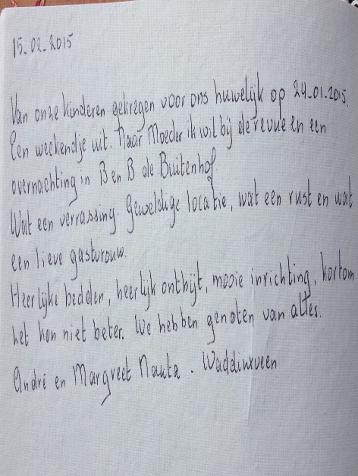 15-02-2015
Van onze kinderen gekregen voor ons huwelijk op 24-01-2015.
Een weekendje uit. Naar Moeder ik wil bij de revue en een
overnachting in B en B de Buitenhof
Wat een verrassing Geweldige locatie, wat een rust en wat
een lieve gastvrouw.
Heerlijke bedden, heerlijk ontbijt, mooie inrichting, kortom
het kon niet beter. We hebben genoten van alles.
André en Margreet Nauta. Waddinxveen